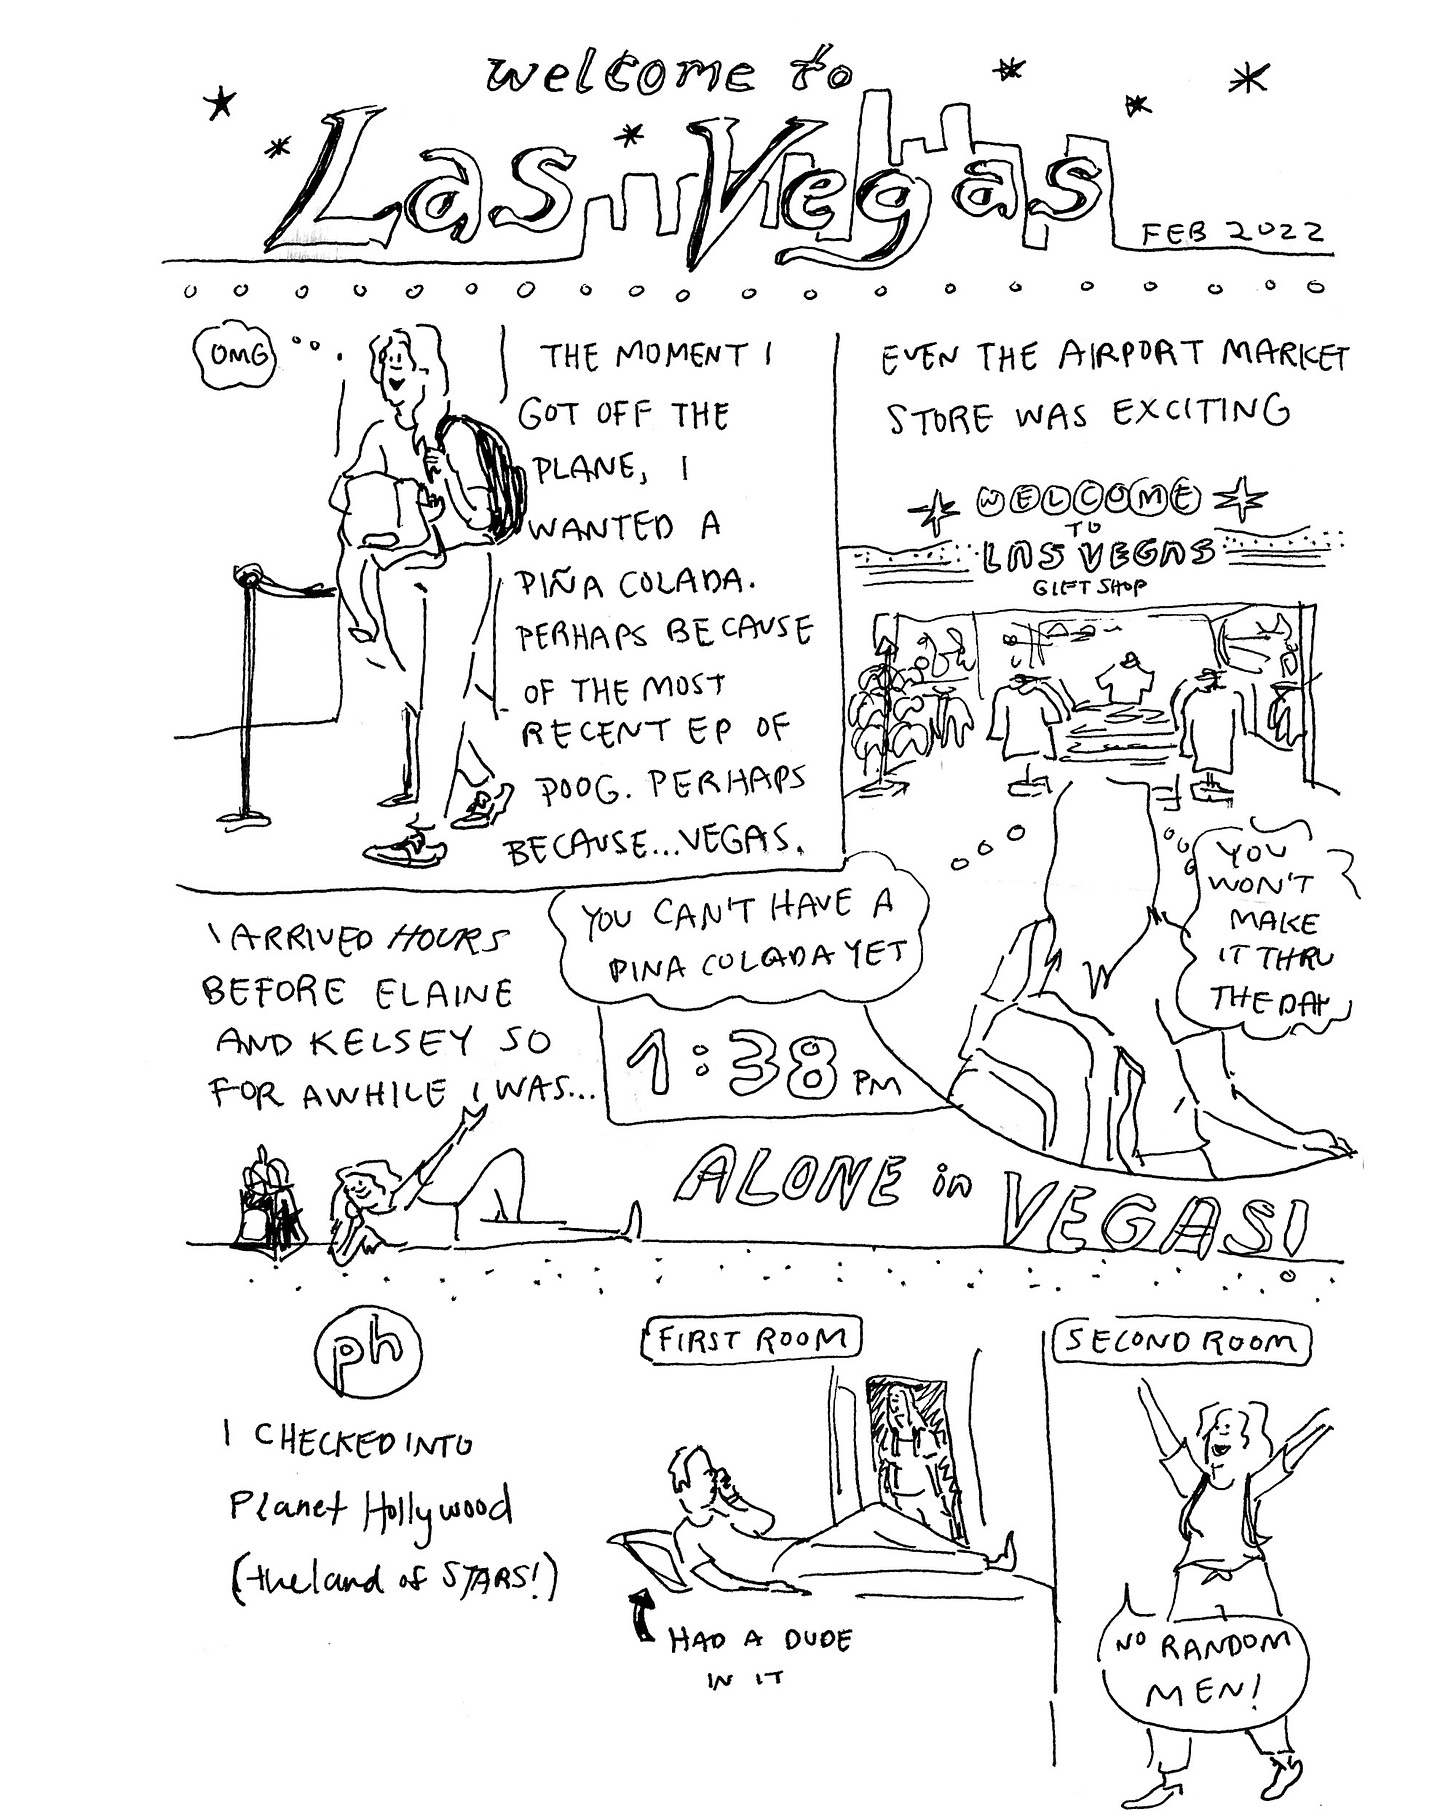 welcome to
Las Vegas
FEB 2022
OMG
THE MOMENT I
GOT OFF THE
PLANE, I
WANTED A
PIÑA COLADA.
PERHAPS BECAUSE
OF THE MOST
RECENT EP OF
POOG. PERHAPS
BECAUSE...VEGAS.
EVEN THE AIRPORT MARKET
STORE WAS EXCITING
WELCOME
TO
LAS VEGAS
GIFT SHOP
YOU CAN'T HAVE A
PINA COLADA YET
YOU
WON'T
MAKE
IT THRU
THE DAY
I ARRIVED HOURS
BEFORE ELAINE
AND KELSEY SO
FOR AWHILE I WAS...
1:38 PM
ALONE in VEGAS!
ph
I CHECKED INTO
Planet Hollywood
(the land of STARS!)
FIRST ROOM
HAD A DUDE
IN IT
SECOND ROOM
NO RANDOM
MEN!